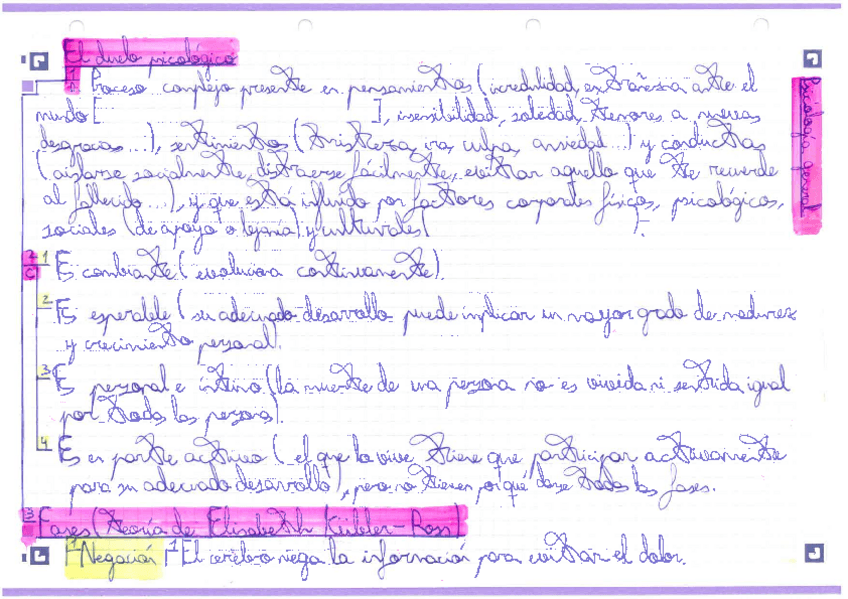 El duelo psicológico
Psicología general
1 Proceso complejo presente en pensamientos (incredulidad, extrañeza ante el
mundo [ ], insensibilidad, soledad, temores a nuevas
desgracias...), sentimientos (tristeza, ira, culpa, ansiedad...) y conductas
(aislarse socialmente, distraerse fácilmente, evitar aquello que te recuerde
al fallecido...), y que está influido por factores corporales físicos, psicológicos,
sociales (de apoyo o lejanía) y culturales ( ).
2 C 1 Es cambiante (evoluciona continuamente).
2 Es esperable (su adecuado desarrollo puede implicar un mayor grado de madurez
y crecimiento personal).
3 Es personal e íntimo (la muerte de una persona no es vivida ni sentida igual
por todas las personas).
4 Es en parte activo (el que lo vive tiene que participar activamente
para su adecuado desarrollo), pero no tienen por qué darse todas las fases.
3 Fases (teoría de Elisabeth Kübler-Ross)
1 Negación 1 El cerebro niega la información para evitar el dolor.